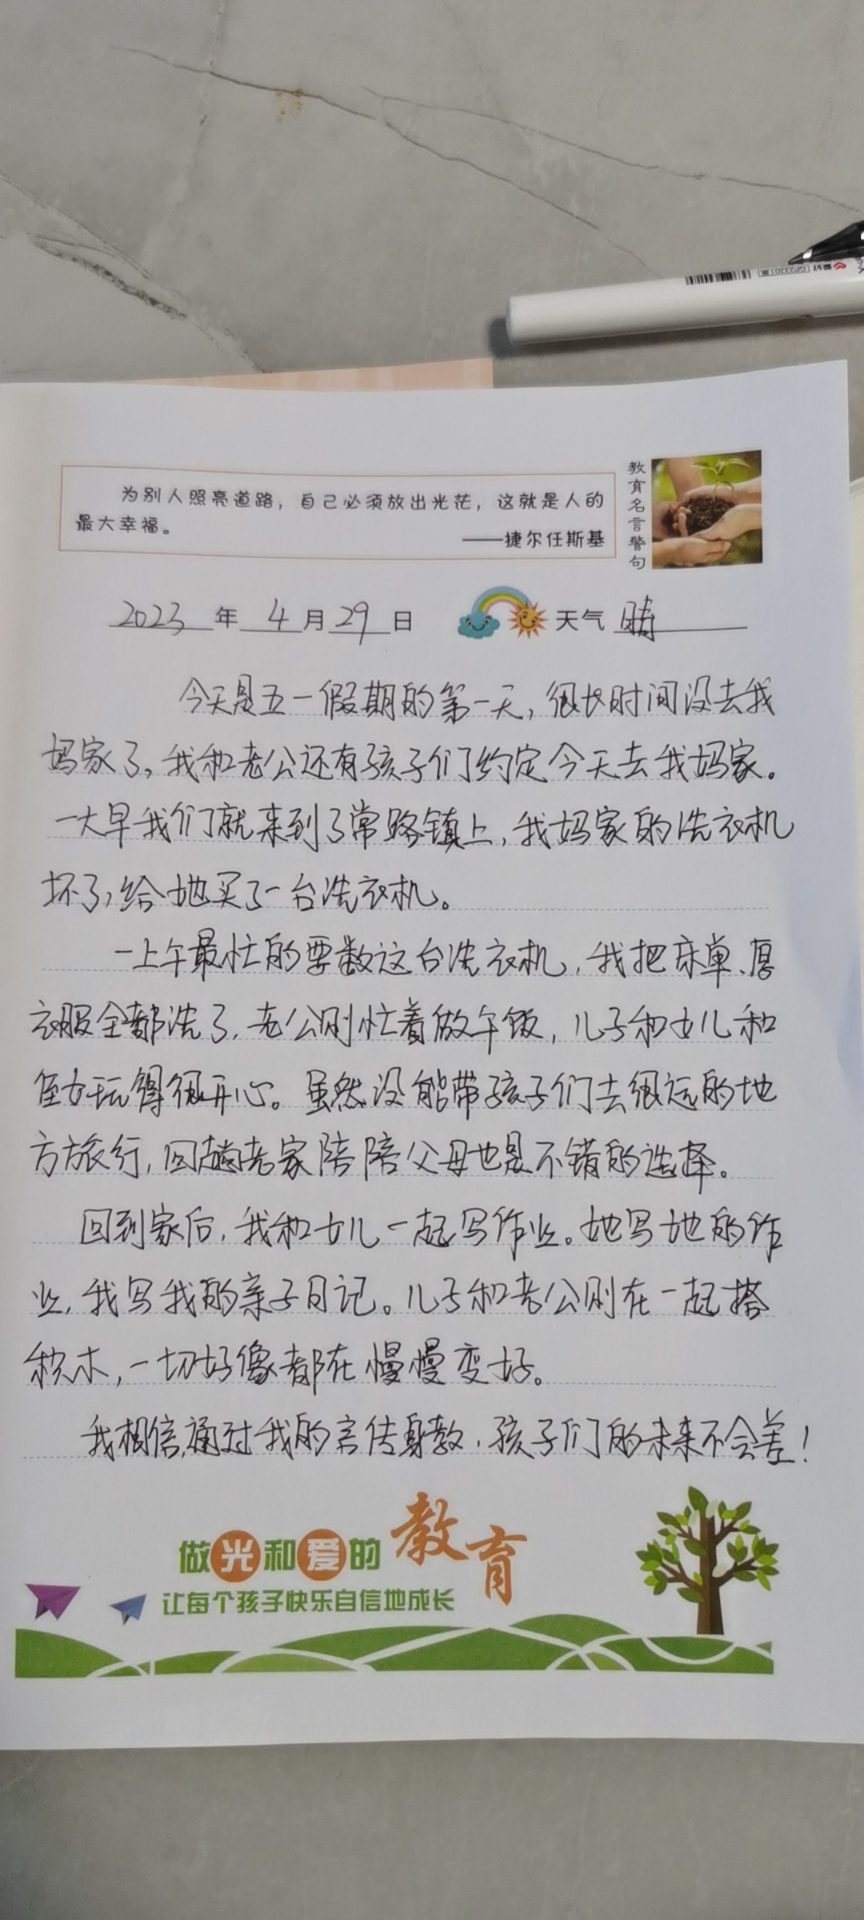 为别人照亮道路，自己必须放出光芒，这就是人的
最大幸福。
——捷尔任斯基
教育名言警句
2023年4月29日 天气 晴
今天是五一假期的第一天，很长时间没去我
妈家了，我和老公还有孩子们约定今天去我妈家。
一大早我们就来到了常路镇上，我妈家的洗衣机
坏了，给她买了一台洗衣机。
一上午最忙的要数这台洗衣机，我把床单、厚
衣服全都洗了，老公则忙着做午饭，儿子和女儿和
侄女玩得很开心。虽然没能带孩子们去很远的地
方旅行，回趟老家陪陪父母也是不错的选择。
回到家后，我和女儿一起写作业。她写她的作
业，我写我的亲子日记。儿子和老公则在一起搭
积木，一切好像都在慢慢变好。
我相信，通过我的言传身教，孩子们的未来不会差！
做光和爱的教育
让每个孩子快乐自信地成长